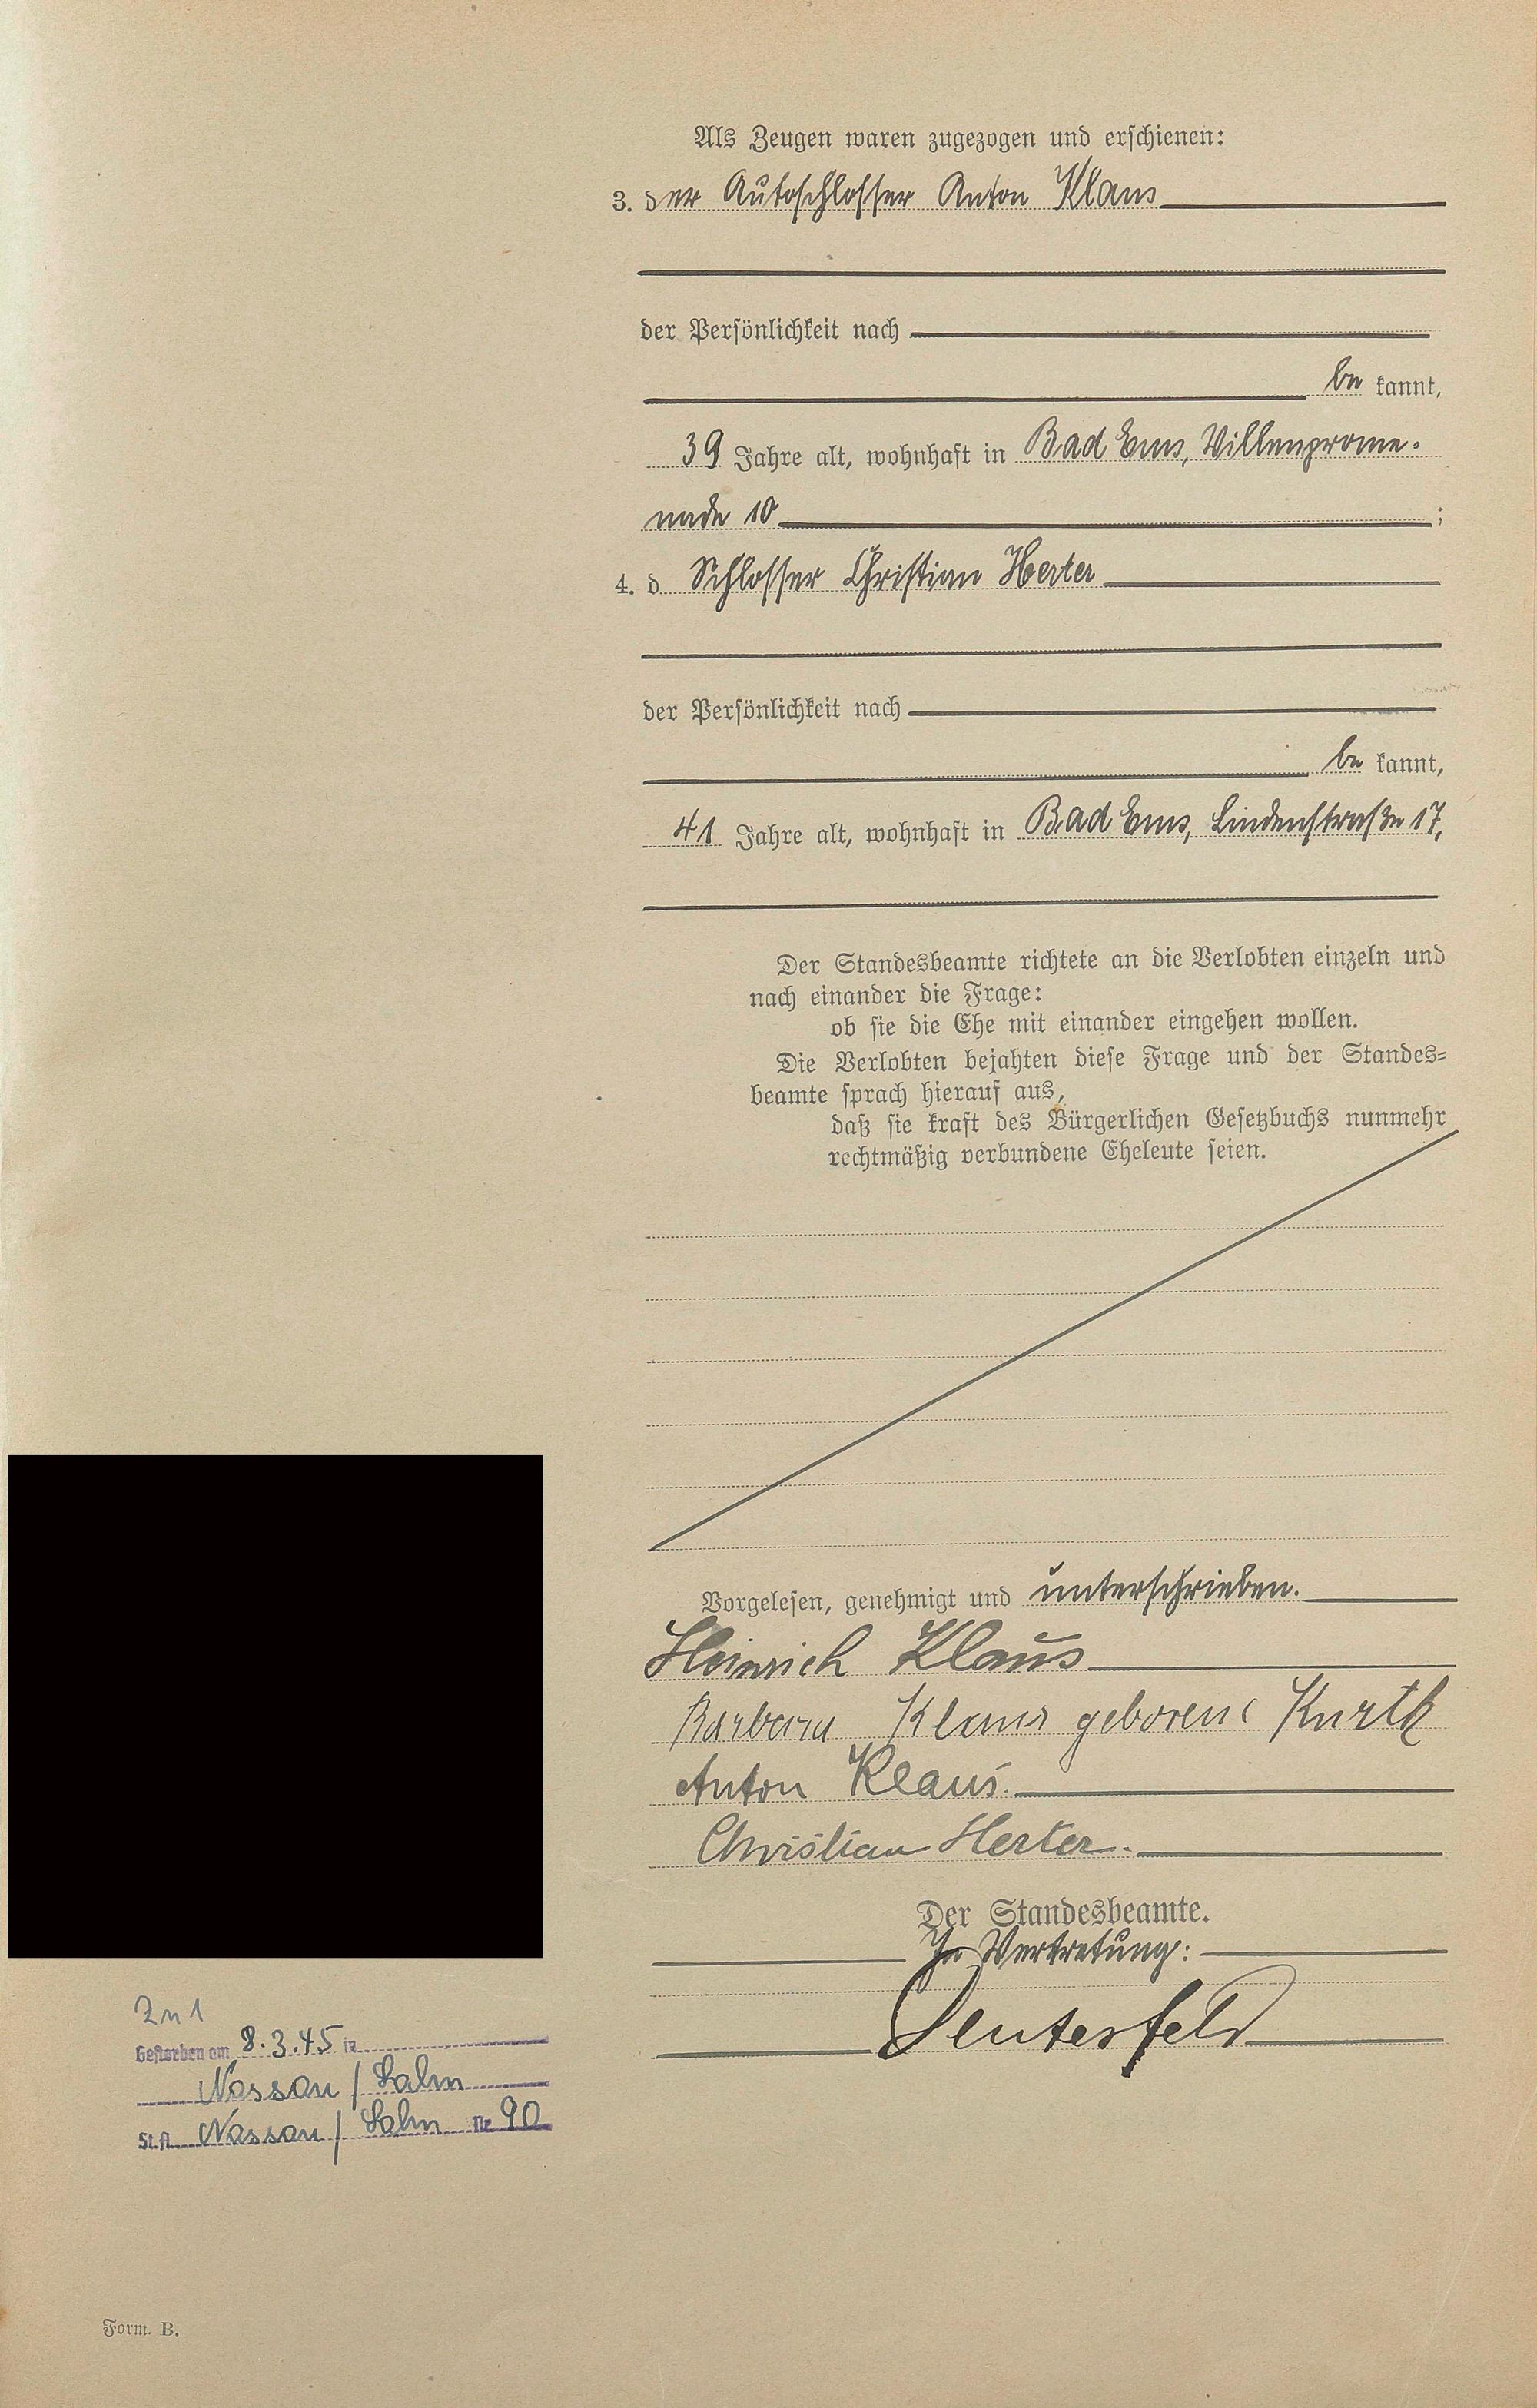 Als Zeugen waren zugezogen und erschienen:
3. der Autoschlosser Anton Klaus
der Persönlichkeit nach
be kannt,
39 Jahre alt, wohnhaft in Bad Ems, Villenprome-
nade 10 ;
4. d Schlosser Christian Herter
der Persönlichkeit nach
be kannt,
41 Jahre alt, wohnhaft in Bad Ems, Lindenstraße 17,
Der Standesbeamte richtete an die Verlobten einzeln und
nach einander die Frage:
ob sie die Ehe mit einander eingehen wollen.
Die Verlobten bejahten diese Frage und der Standes=
beamte sprach hierauf aus,
daß sie kraft des Bürgerlichen Gesetzbuchs nunmehr
rechtmäßig verbundene Eheleute seien.
Vorgelesen, genehmigt und unterschrieben.
Heinrich Klaus
Barbara Klaus geborene Kurth
Anton Klaus.
Christian Herter.
Der Standesbeamte.
In Vertretung:
Zu 1
Gestorben am 8.3.45 in
Nassau / Lahn
St.A. Nassau / Lahn Nr. 90
Form. B.